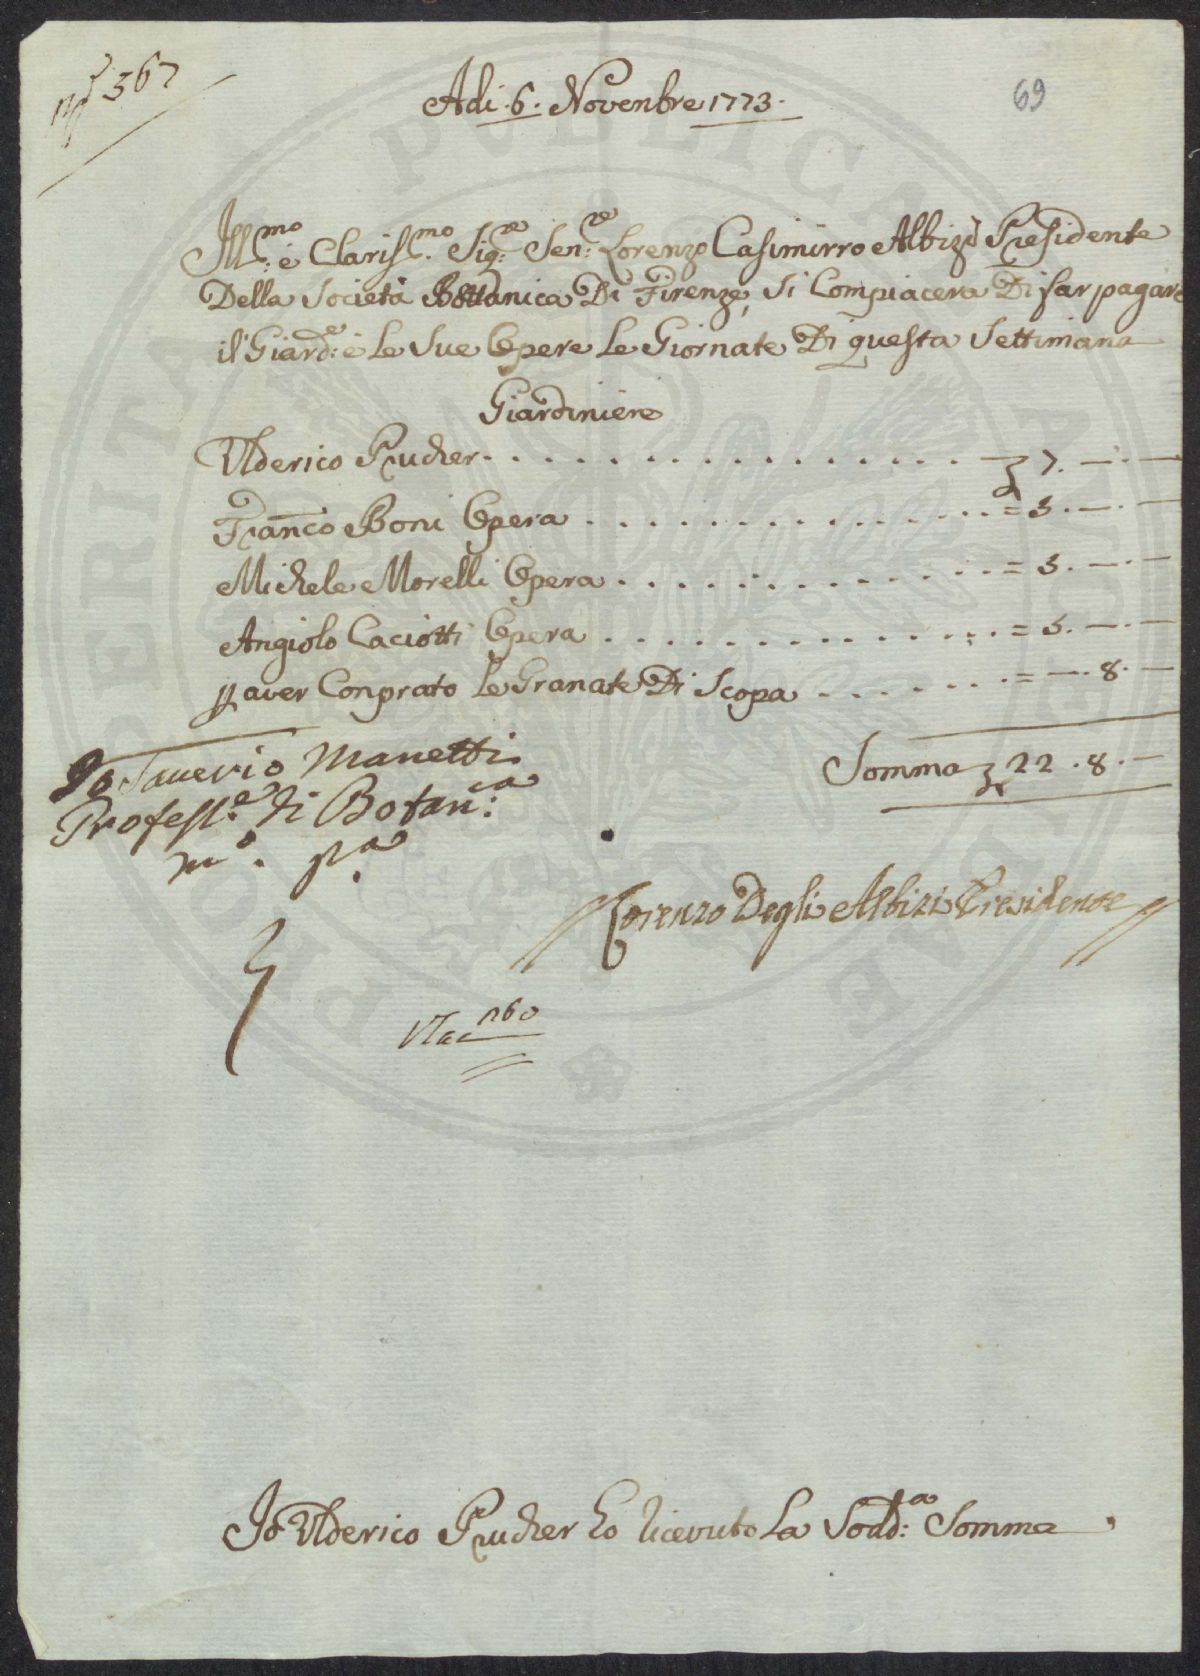 N.º 367
69
Adi. 6. Novenbre 1773.
Ill:mo e Clariss.mo Sig:re Sen:re Lorenzo Casimirro Albizi Presidente
Della Società Bottanica Di Firenze, Si Compiacera Di far pagare
il Giard:e e Le Sue Opere Le Giornate Di questa Settimana
Giardiniere
Ulderico Prucher . . . . . . . . . . 7. — . —
Franco Boni Opera . . . . . . . . . . = 5. — . —
Michele Morelli Opera . . . . . . . . . . = 5. — . —
Angiolo Caciotti Opera . . . . . . . . . . = 5. — . —
p aver Conprato Le Granate Di Scopa . . . . . . . = — . 8. —
Somma 22 . 8. —
Io Saverio Manetti
Profess:e di Botan:ca
m.o p.a
Lorenzo Degli Albizi Presidente
260
Io Ulderico Prucher ho ricevuto La Sodd:a Somma
PUBLICAE
PROSPERITATI